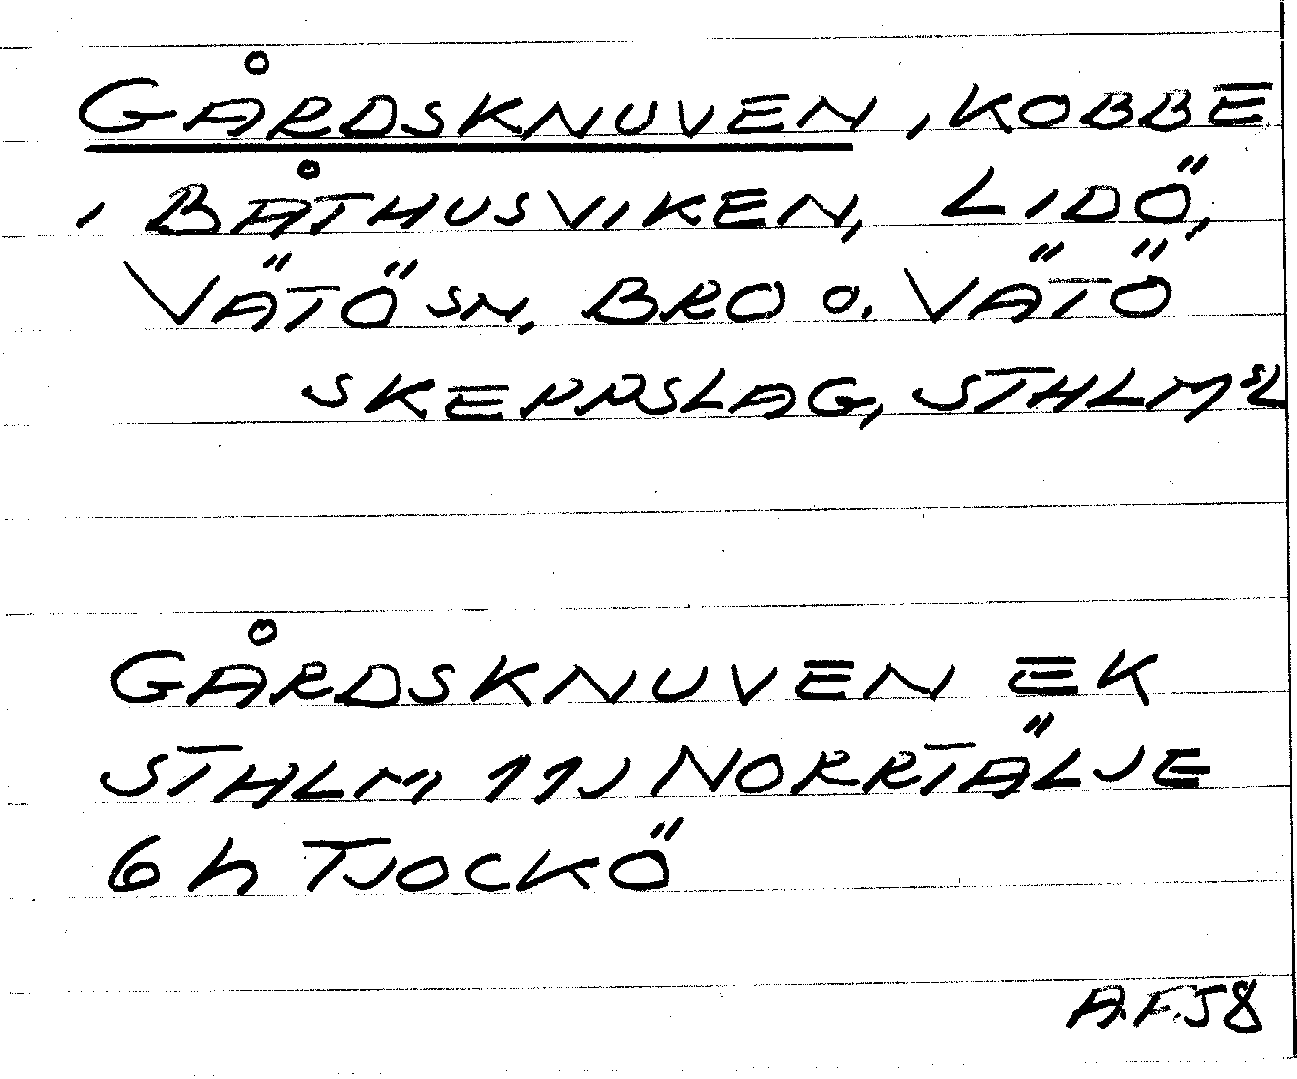 GÅRDSKNUVEN, KOBBE
I BÅTHUSVIKEN, LIDÖ,
VÄTÖ SN, BRO O. VÄTÖ
SKEPPSLAG, STHLMS L
GÅRDSKNUVEN EK
STHLM 11J NORRTÄLJE
6 h TJOCKÖ
A.F. 58